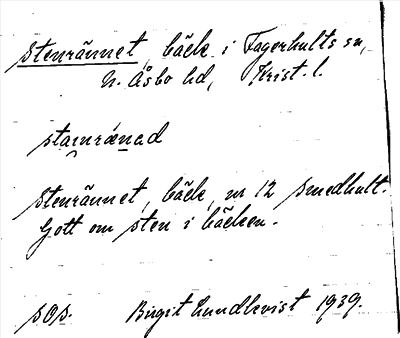 Stenrännet, bäck i Fagerhults sn,
N. Åsbo hd, Krist. l.
stai̯nrænad
Stenrännet, bäck, nr 12 Smedhult.
Gott om sten i bäcken.
sOs. Birgit Lundkvist 1939.